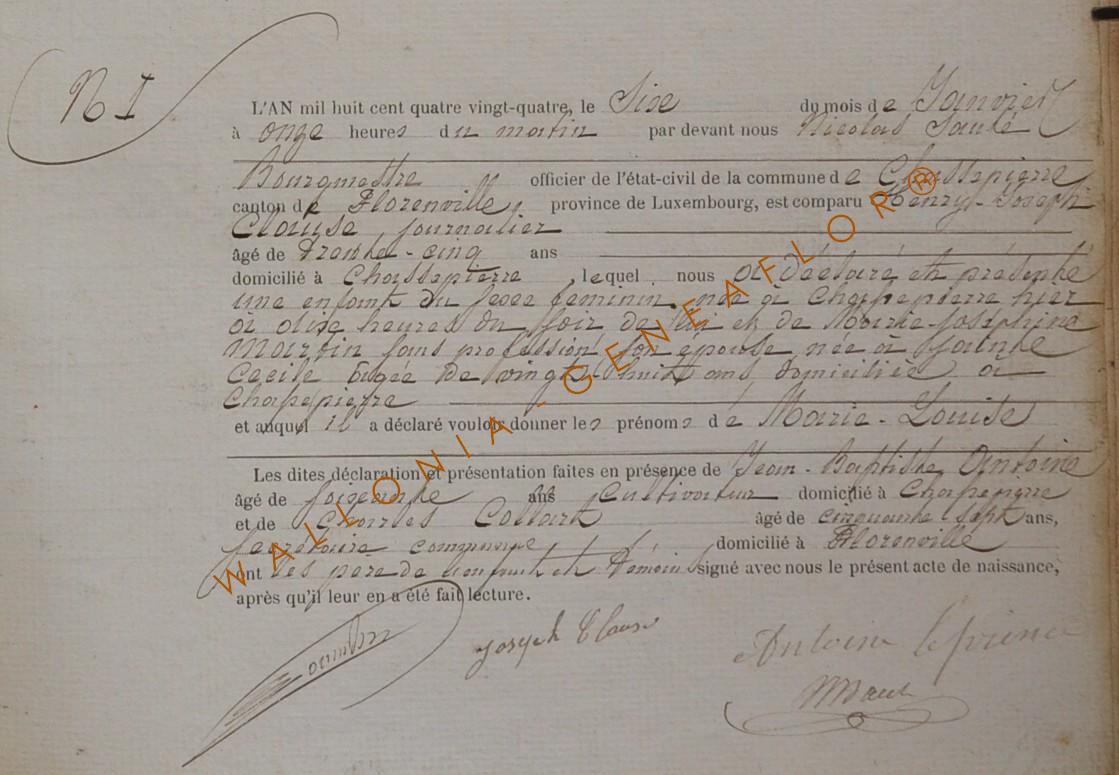 N I
L'AN mil huit cent quatre vingt-quatre, le Sixe du mois de Janvier
à onze heures du matin par devant nous Nicolas Sauté
Bourgmestre officier de l'état-civil de la commune de Chassepierre
canton de Florenville, province de Luxembourg, est comparu Henry-Joseph
Clause journalier
âgé de Trente-cinq ans
domicilié à Chassepierre, lequel nous a déclaré et présenté
une enfant du sexe féminin née à Chassepierre hier
à dixe heures du soir de lui et de Marie-Joséphine
Martin sans profession, son épouse née à Sainte
Cécile âgée de vingt-huit ans domiciliée à
Chassepierre
et auquel il a déclaré vouloir donner les prénoms de Marie-Louise
Les dites déclaration et présentation faites en présence de Jean-Baptiste Antoine
âgé de soixante ans Cultivateur domicilié à Chassepierre
et de Charles Collart âgé de cinquante-sept ans,
secrétaire communal domicilié à Florenville
ont les père de l'enfant et témoins signé avec nous le présent acte de naissance,
après qu'il leur en a été fait lecture.
Joseph Clause
Antoine Leprince
WALLONIA-GENEAFLOR®